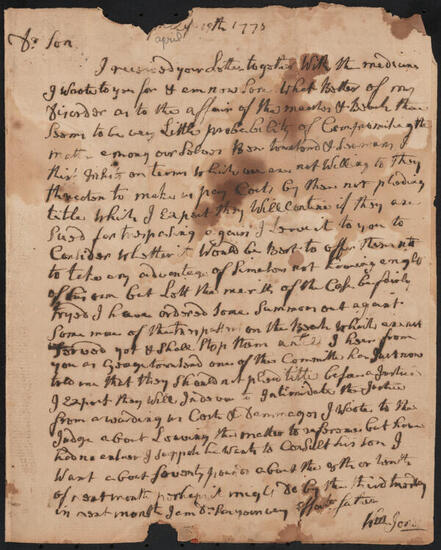 april 19th 1775
Dr Son
I received your Letter together With the medicine
I Wrote to you for & am now Som What Better of my
Disorder as to the affair of the meadow & Beach there
Seems to be very Little probability of Compromiseing the
matter among our Selves Ben Townsend &
this on terms Which we are not Willing to They
threaton to make us pay Costs by their not pleading
title Which I Expect they Will Continue if they are
Sued for trespasing again I Leave it to you to
Consider Whether it Would be Best to offer them not
to take any advantage of not
of but Lett the merits of the Case be fairly
tryed I have ordered Some Summons out against
Some more of the trespasers on the Beach Which are not
Served yet & Shall Stop them until I hear from
you as George townsend one of the Committe has Just now
told me that they Should not plead title before a Justice
I Expect they Will Indeavor to Intimidate the Justice
from awarding us Costs & Dammages I Wrote to the
Judge about Leaving the matter to reference but have
had no answer I suppose he Wants to Consult his son I
Want about Seventy pounds about the 8th or tenth
of next month perhaps it might do by the third monday
in next month I am Dr Son yours father
Will